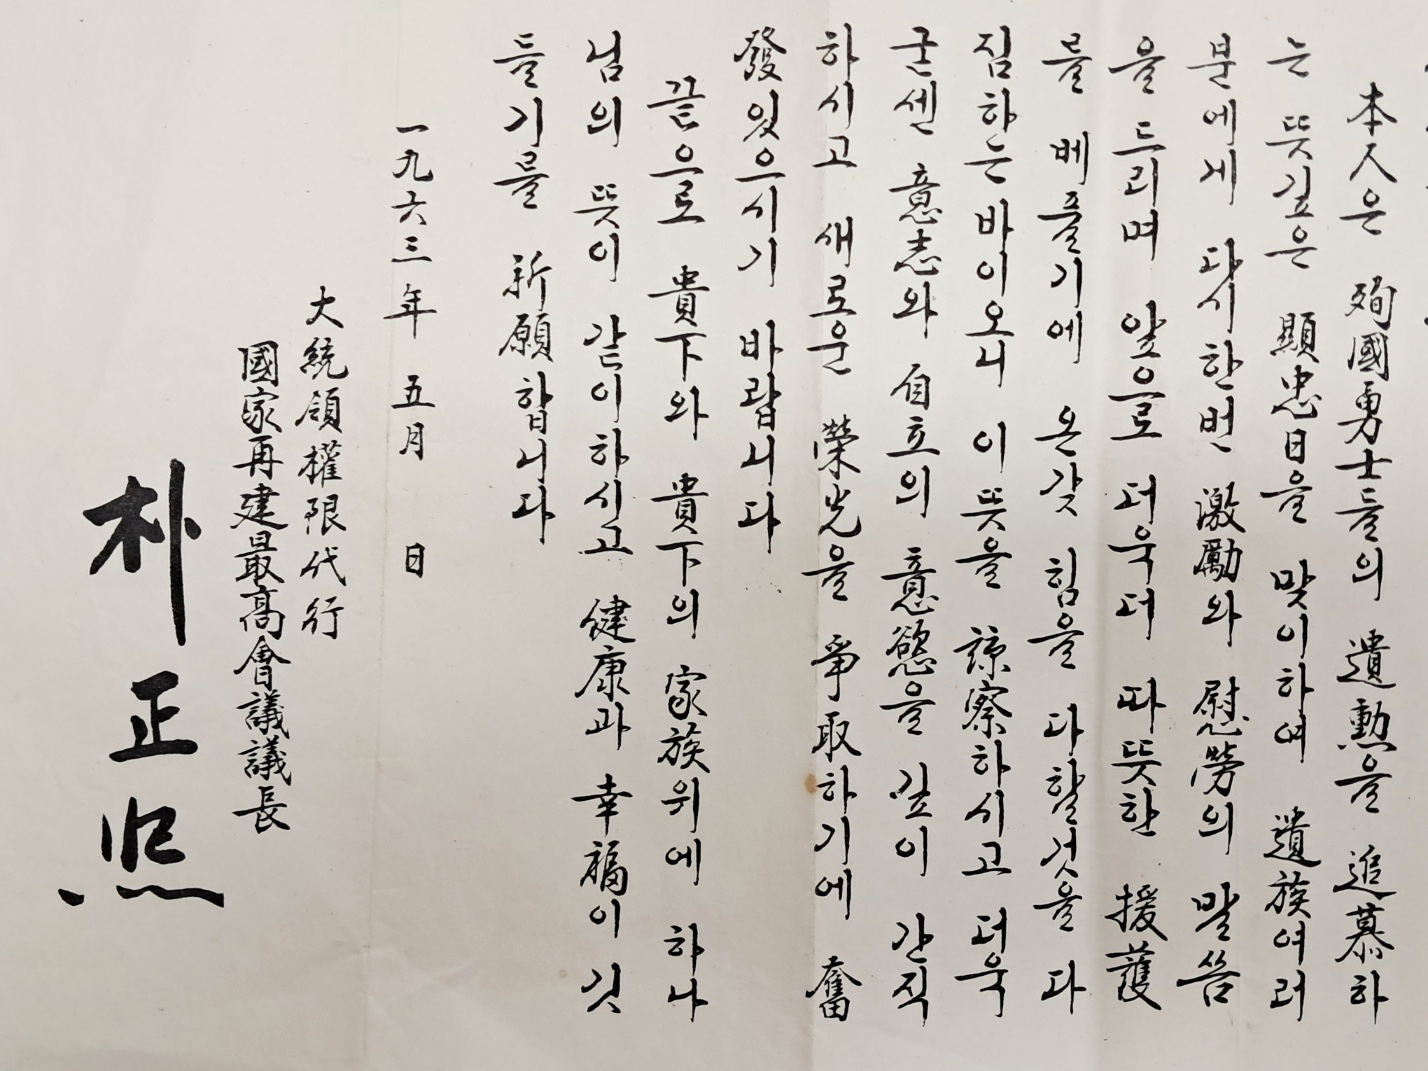 本人은 殉國勇士들의 遺勳을 追慕하
는 뜻깊은 顯忠日을 맞이하여 遺族여러
분에게 다시한번 激勵와 慰勞의 말씀
을 드리며 앞으로 더욱더 따뜻한 援護
를 베풀기에 온갖 힘을 다할것을 다
짐하는바이오니 이 뜻을 諒察하시고 더욱
굳센 意志와 自立의 意慾을 깊이 간직
하시고 새로운 榮光을 爭取하기에 奮
發있으시기 바랍니다
끝으로 貴下와 貴下의 家族위에 하나
님의 뜻이 같이하시고 健康과 幸福이 깃
들기를 祈願합니다
一九六三年 五月 日
大統領權限代行
國家再建最高會議議長
朴正熙